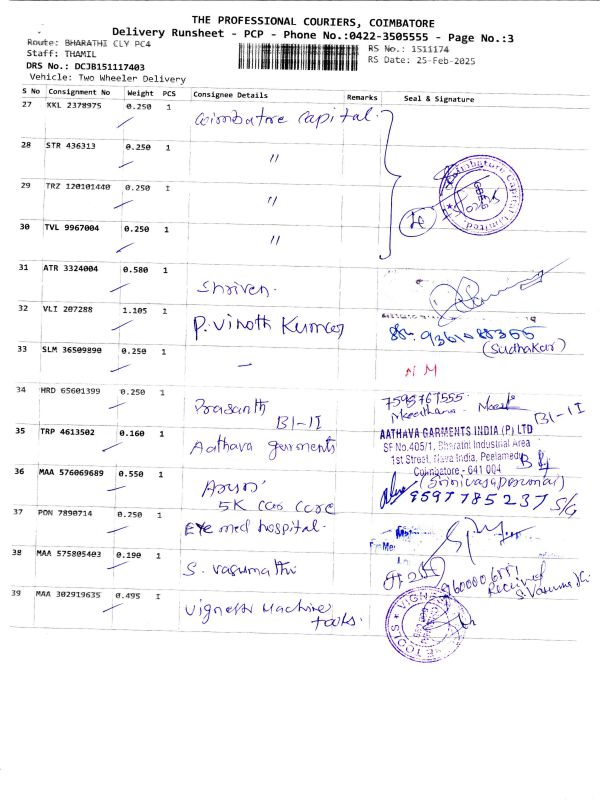 THE PROFESSIONAL COURIERS, COIMBATORE
Delivery Runsheet - PCP - Phone No.:0422-3505555 - Page No.:3
Route: BHARATHI CLY PC4
RS No.: 1511174
Staff: THAMIL
RS Date: 25-Feb-2025
DRS No.: DCJB151117403
Vehicle: Two Wheeler Delivery
S No Consignment No Weight PCS Consignee Details Remarks Seal & Signature
27 KKL 2378975 0.250 1 Coimbatore Capital.
28 STR 436313 0.250 1 "
29 TRZ 120101440 0.250 1 "
Coimbatore Capital Limited
30 TVL 9967004 0.250 1 "
31 ATR 3324004 0.580 1 Shriven.
32 VLI 207288 1.105 1 P. Vinoth Kumar
(Sudhakar)
33 SLM 36509890 0.250 1 — N M
34 HRD 65601399 0.250 1 Prasanth B1-11
7598767555
B1-11
35 TRP 4613502 0.160 1 Aathava garments
AATHAVA GARMENTS INDIA (P) LTD
SF No.405/1, Bharathi Industrial Area
1st Street, Nava India, Peelamedu
Coimbatore - 641 004
36 MAA 576069689 0.550 1
5K car care
(Srinivasaperumal)
9597785237 S/G
37 PON 7890714 0.250 1 Eye med hospital.
38 MAA 575805403 0.190 1 S. Vasumathi
Received
S. Vasumathi
39 MAA 302919635 0.495 1 Vignesh Machine
tools.